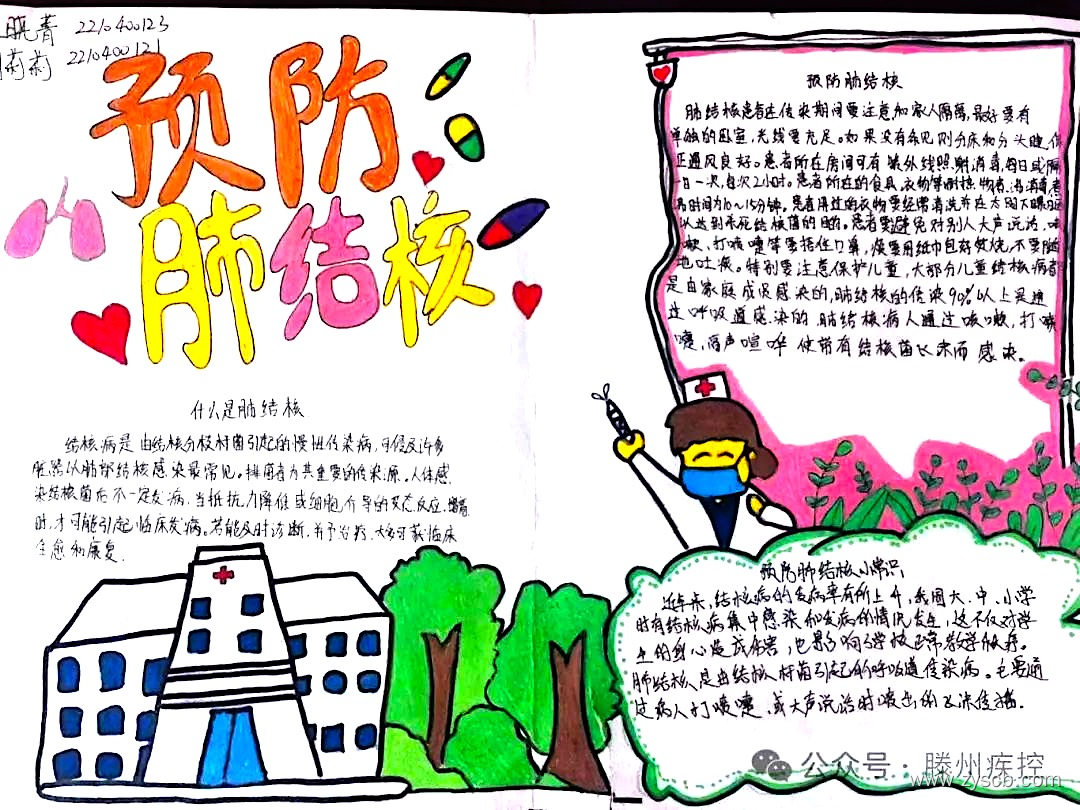 晓青 2210400123
莉莉 2210400121
预防
肺结核
什么是肺结核
结核病是由结核分枝杆菌引起的慢性传染病,可侵及许多
脏器,以肺部结核感染最常见。排菌者为其重要的传染源。人体感
染结核菌后不一定发病,当抵抗力降低或细胞介导的变态反应增高
时,才可能引起临床发病。若能及时诊断,并予治疗,大多可获临床
痊愈和康复
预防肺结核
肺结核患者在传染期间要注意和家人隔离,最好要有
单独的卧室,光线要充足。如果没有条件则分床和分头睡,保
正通风良好。患者所在房间可有紫外线照射消毒,每日或隔
日一次,每次2小时。患者所在的食具、衣物等
时间为10~15分钟,患者用过的衣物要经常清洗并在太阳下曝晒
以达到杀死结核菌的目的。患者要避免对别人大声说话,咳
嗽、打喷嚏等要捂住口鼻,痰要用纸巾包好焚烧,不要随
地吐痰。特别要注意保护儿童,大部分儿童结核病都
是由家庭成员感染的,肺结核的传染90%以上是通
过呼吸道感染的 肺结核病人通过咳嗽,打喷
嚏,高声喧哗 使带有结核菌飞沫而感染。
预防肺结核小常识
近年来,结核病的发病率有所上升,我国大、中、小学
时有结核病集中感染和发病的情况发生,这不仅对学
生的身心造成伤害,也影响了学校正常教学秩序。
肺结核是由结核杆菌引起的呼吸道传染病。主要通
过病人打喷嚏、或大声说话时喷出的飞沫传播.
公众号·滕州疾控
www.zyscb.com